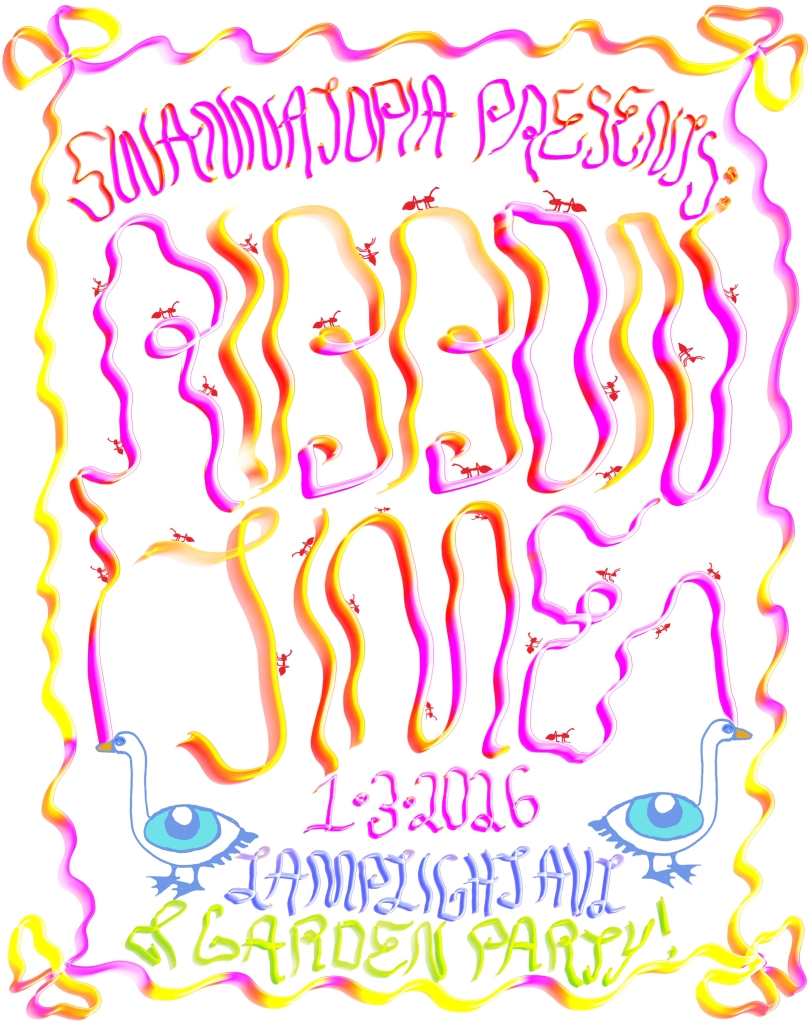 SWANNATOPIA PRESENTS:
RIBBON
TIME
1·3·2026
LAMPLIGHT AVL
& GARDEN PARTY!